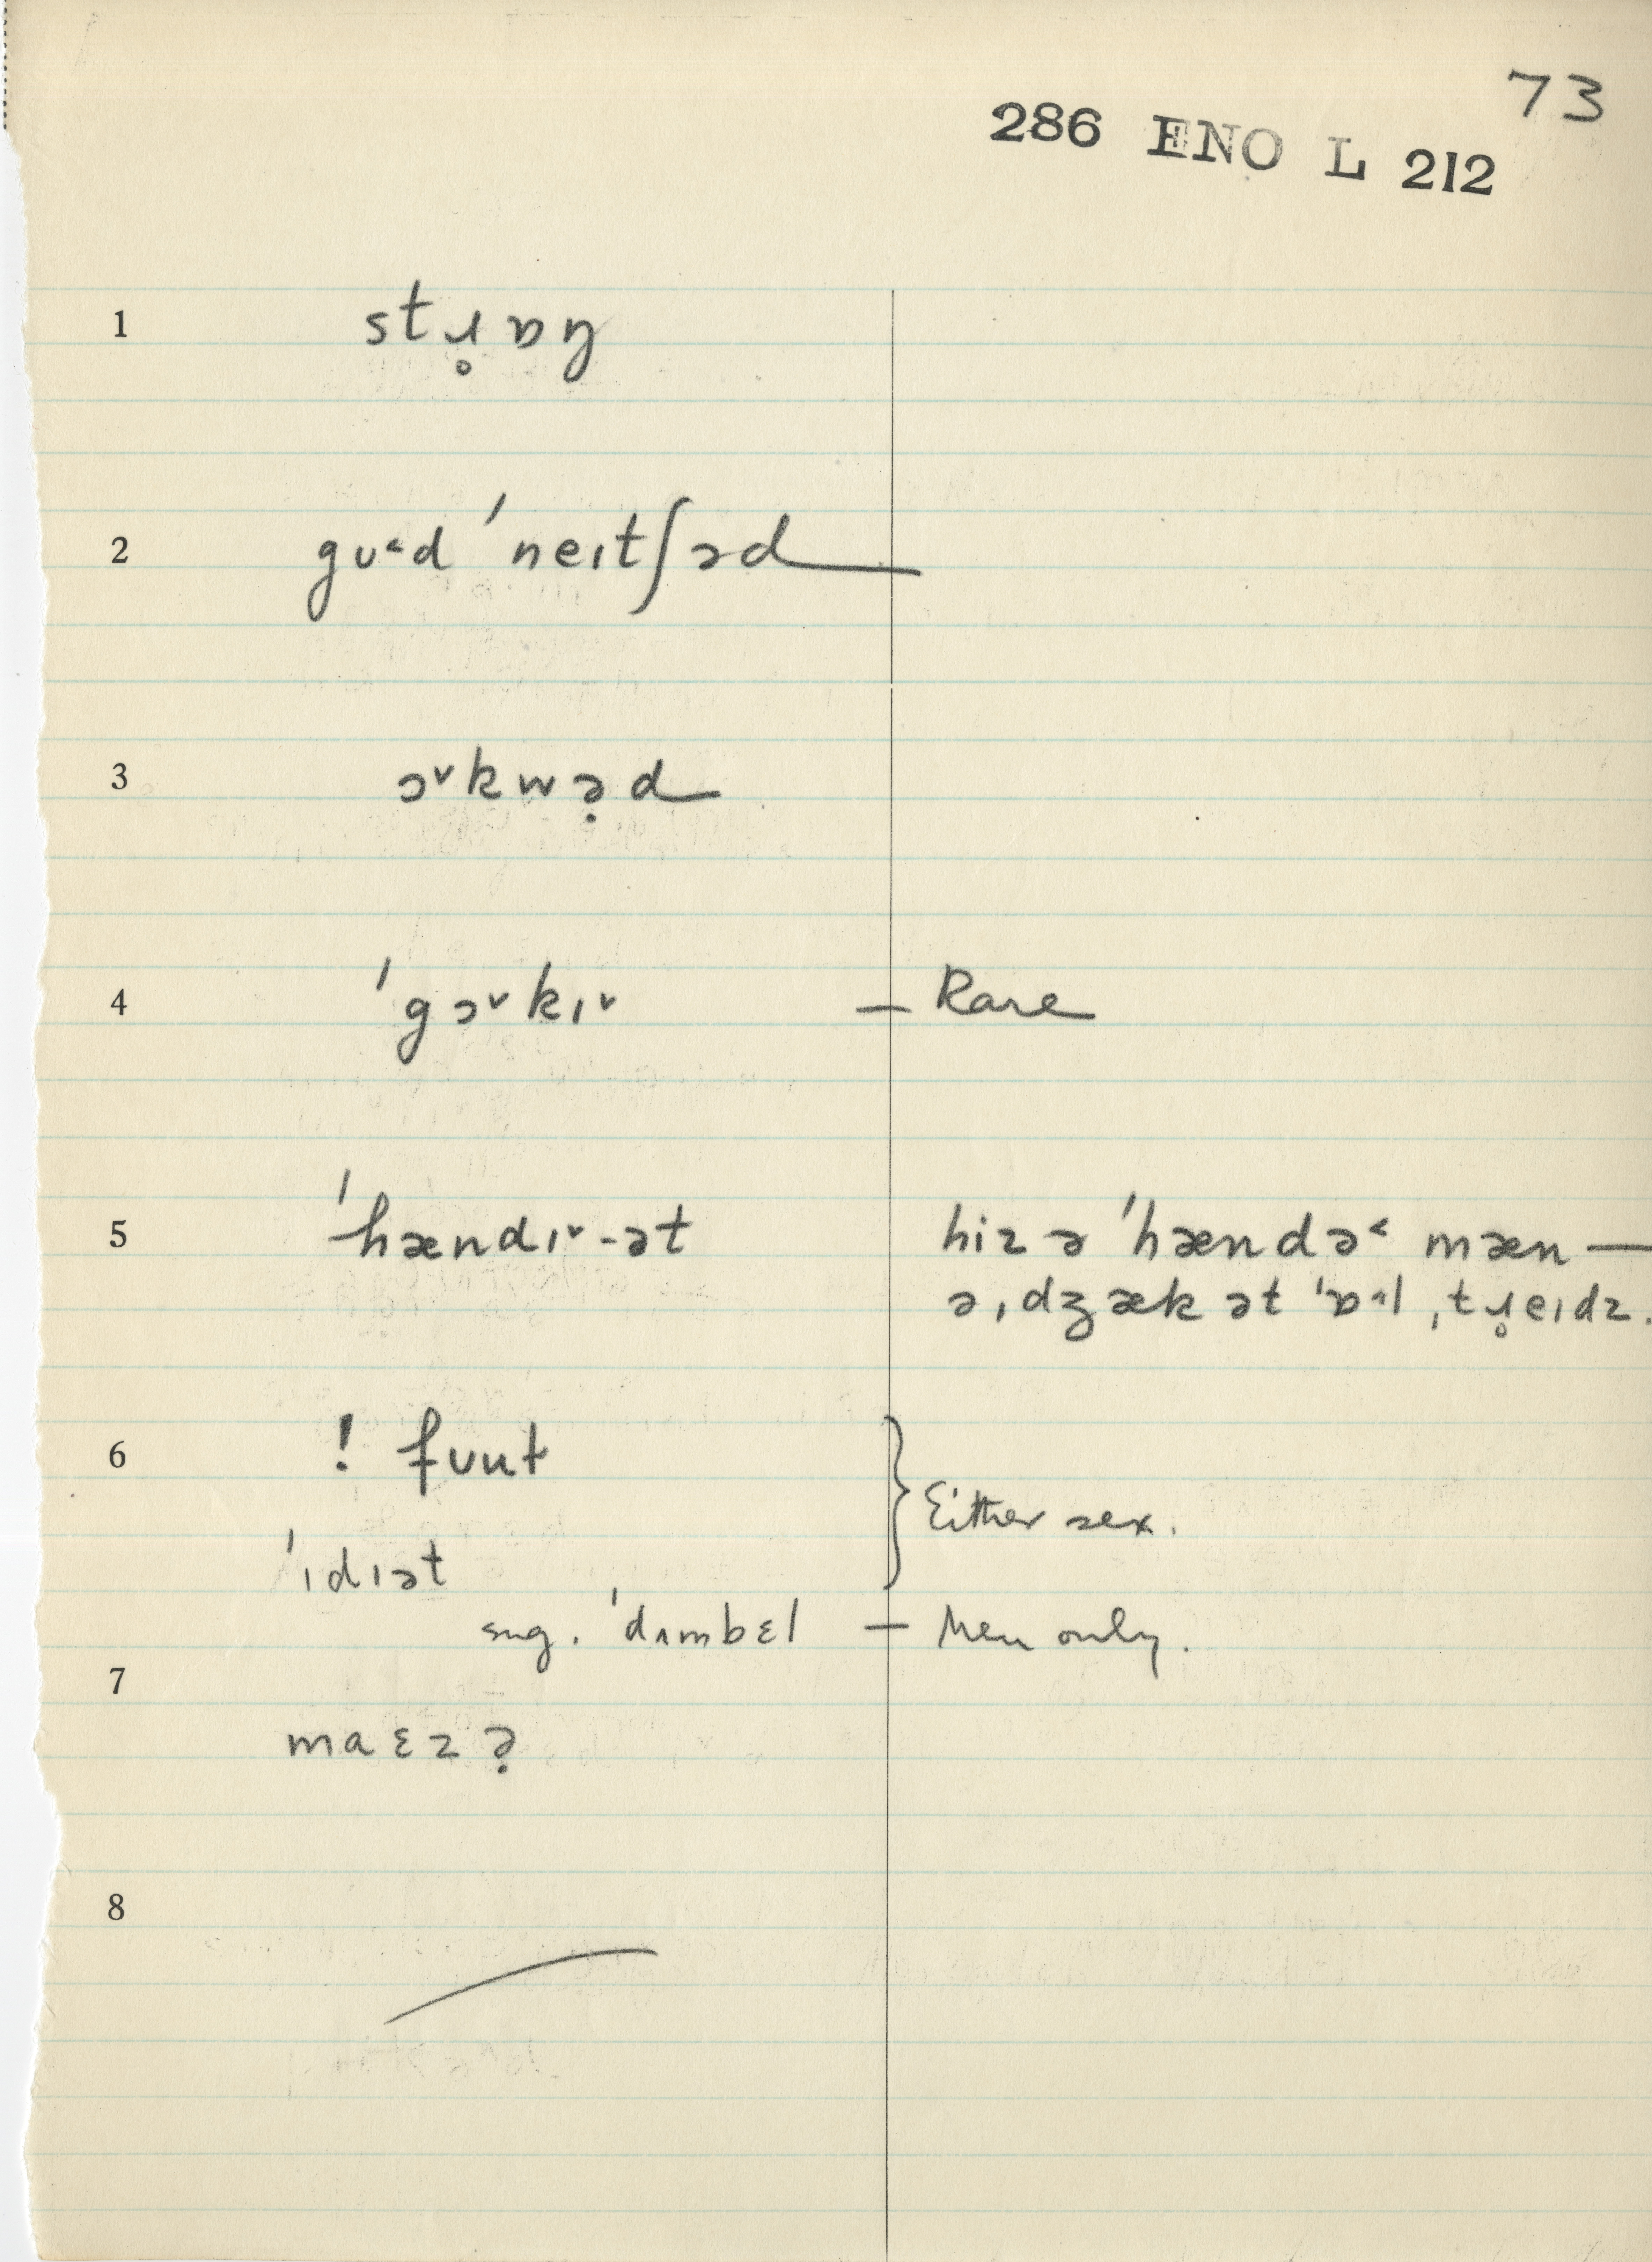 73
286 ENO L 212
1 stɹ̥ɒŋ
2 gʊ˂d ˈneɪtʃəd
3 ɔ˅kwə̣d
4 ˈgɔ˅kɪ˅ — Rare
5 ˈhændɪ˅-ət hiz ə ˈhændə˂ mæn —
ə ˌdʒæk ət ˈɒ˄l ˌtɹ̥eɪdz.
6 ! fʊnt } Either sex.
ˈɪdɪət
sug. ˈdʌmbɛl — Men only.
7
maɛzə̣
8